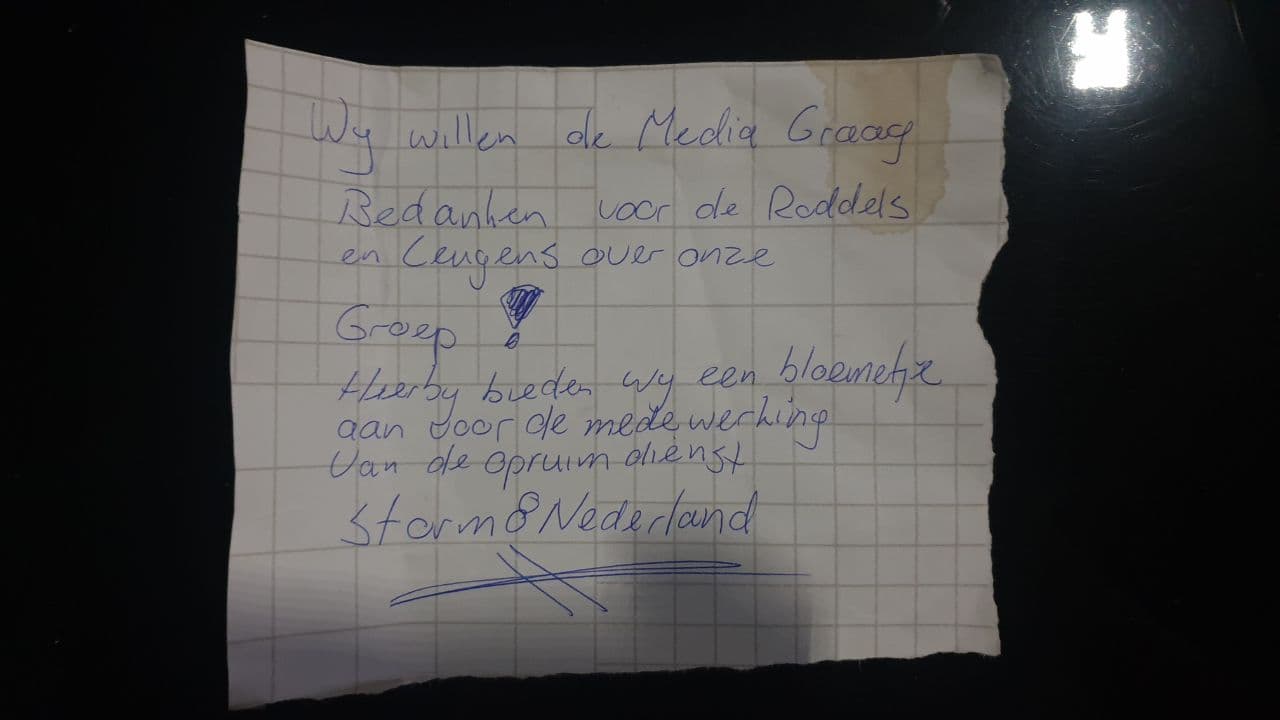 Wy willen de Media Graag
Bedanken voor de Roddels
en Leugens over onze
Groep !
Hierby bieden wy een bloemetje
aan voor de medewerking
Van de opruim dienst
Storm8Nederland